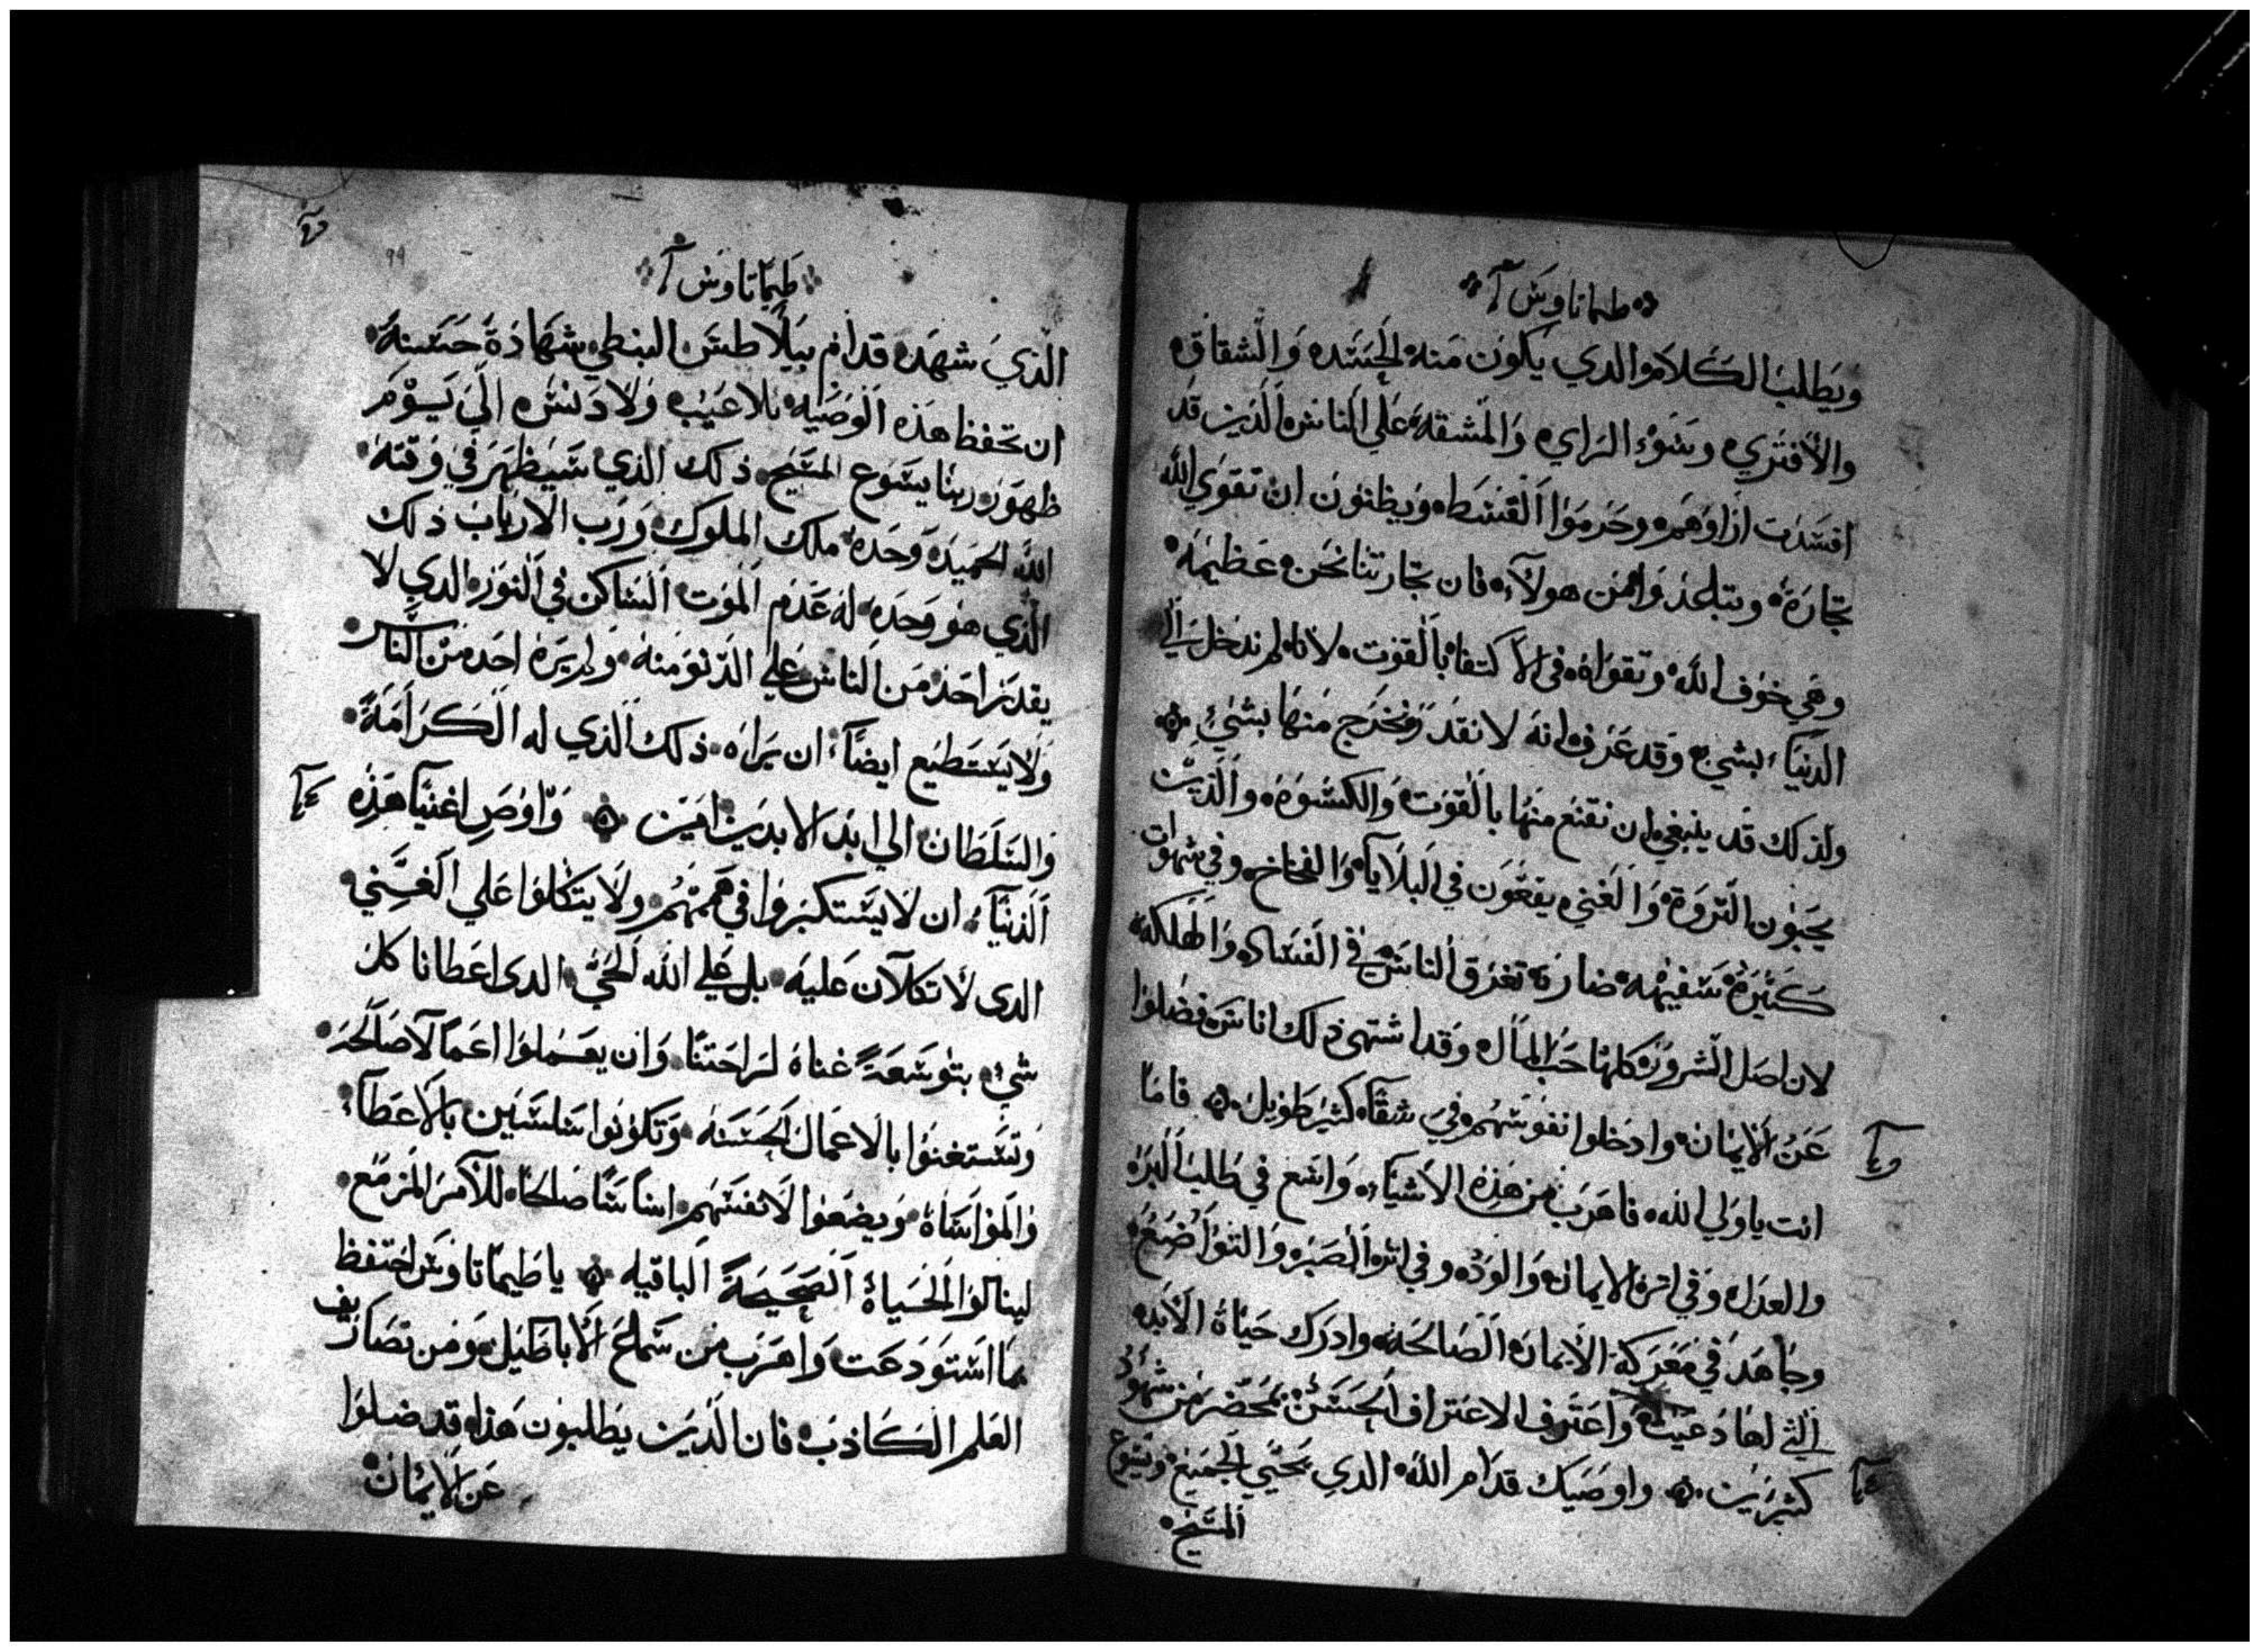 طيماتاوس آ
ويطلب الكلام والدي يكون منه الحسد والشقاق
والافتري وسوء الراي والمشقة علي الناس الذين قد
افسدت اراوهم وحرموا القسط ويظنون ان تقوي الله
تجارة وتباعد وامن هولآء فان تجارتنا نحن عظيمة
وهي خوف الله وتقواه في الاكتفا بالقوت لانا لم ندخل الي
الدنيا بشي وقد عرف انه لا نقدر ونخرج منها بشيء
ولذلك قد ينبغي ان نقنع منها بالقوت والكسوة والذين
يحبون الثروة والغني يقعون في البلايا والفخاخ وفي شهوات
كثيرة سفيهه ضارة تغرق الناس في الفساد والهلكة
لان اصل الشرور كلها حب المال وقد اشتهي ذلك اناس فضلوا
عن الايمان وادخلوا نفوسهم في شقآ كثير طويل فاما
انت يا ولي الله فاهرب من هذه الاشيآء واسع في طلب البر
والعدل وفي اثر الايمان والود وفي اثر الصبر والتواضع
وجاهد في معركة الايمان الصالحة وادرك حياة الابد
التي لها دعيت واعترف الاعتراف الحسن بمحضر من شهود
كثيرين واوصيك قدام الله الدي يحيي الجميع ويسوع
المسيح
طيماتاوس آ
الذي شهد قدام بيلاطس البنطي شهادة حسنة
ان تحفظ هذه الوصيه بلا عيب ولا دنس الي يوم
ظهور ربنا يسوع المسيح ذلك الذي سيظهر في وقته
الله الحميد وحده ملك الملوك ورب الارباب ذلك
الذي هو وحده له عدم الموت الساكن في النور الدي لا
يقدر احد من الناس علي الدنو منه ولم يره احد من الناس
ولا يستطيع ايضا ان يراه ذلك الذي له الكرامة
والسلطان الي ابد الابدين امين واوص اغنيا هذه
الدنيا ان لا يستكبروا في هممهم ولا يتكلوا علي الغني
الدى لا تكلان عليه بل علي الله الحي الدى اعطانا كل
شيء بتوسعة غناه لراحتنا وان يعملوا اعمالا صالحة
وتستغنوا بالاعمال الحسنه وتكونوا سلسين بالاعطاء
والمواساة ويضعوا لانفسهم اساسا صالحا للآمر المزمع
لينالوا الحياة الصحيحة الباقيه يا طيماتاوس احتفظ
بما استودعت واهرب من سماع الاباطيل ومن تصاريف
العلم الكاذب فان الذين يطلبون هذا قد ضلوا
عن الايمان